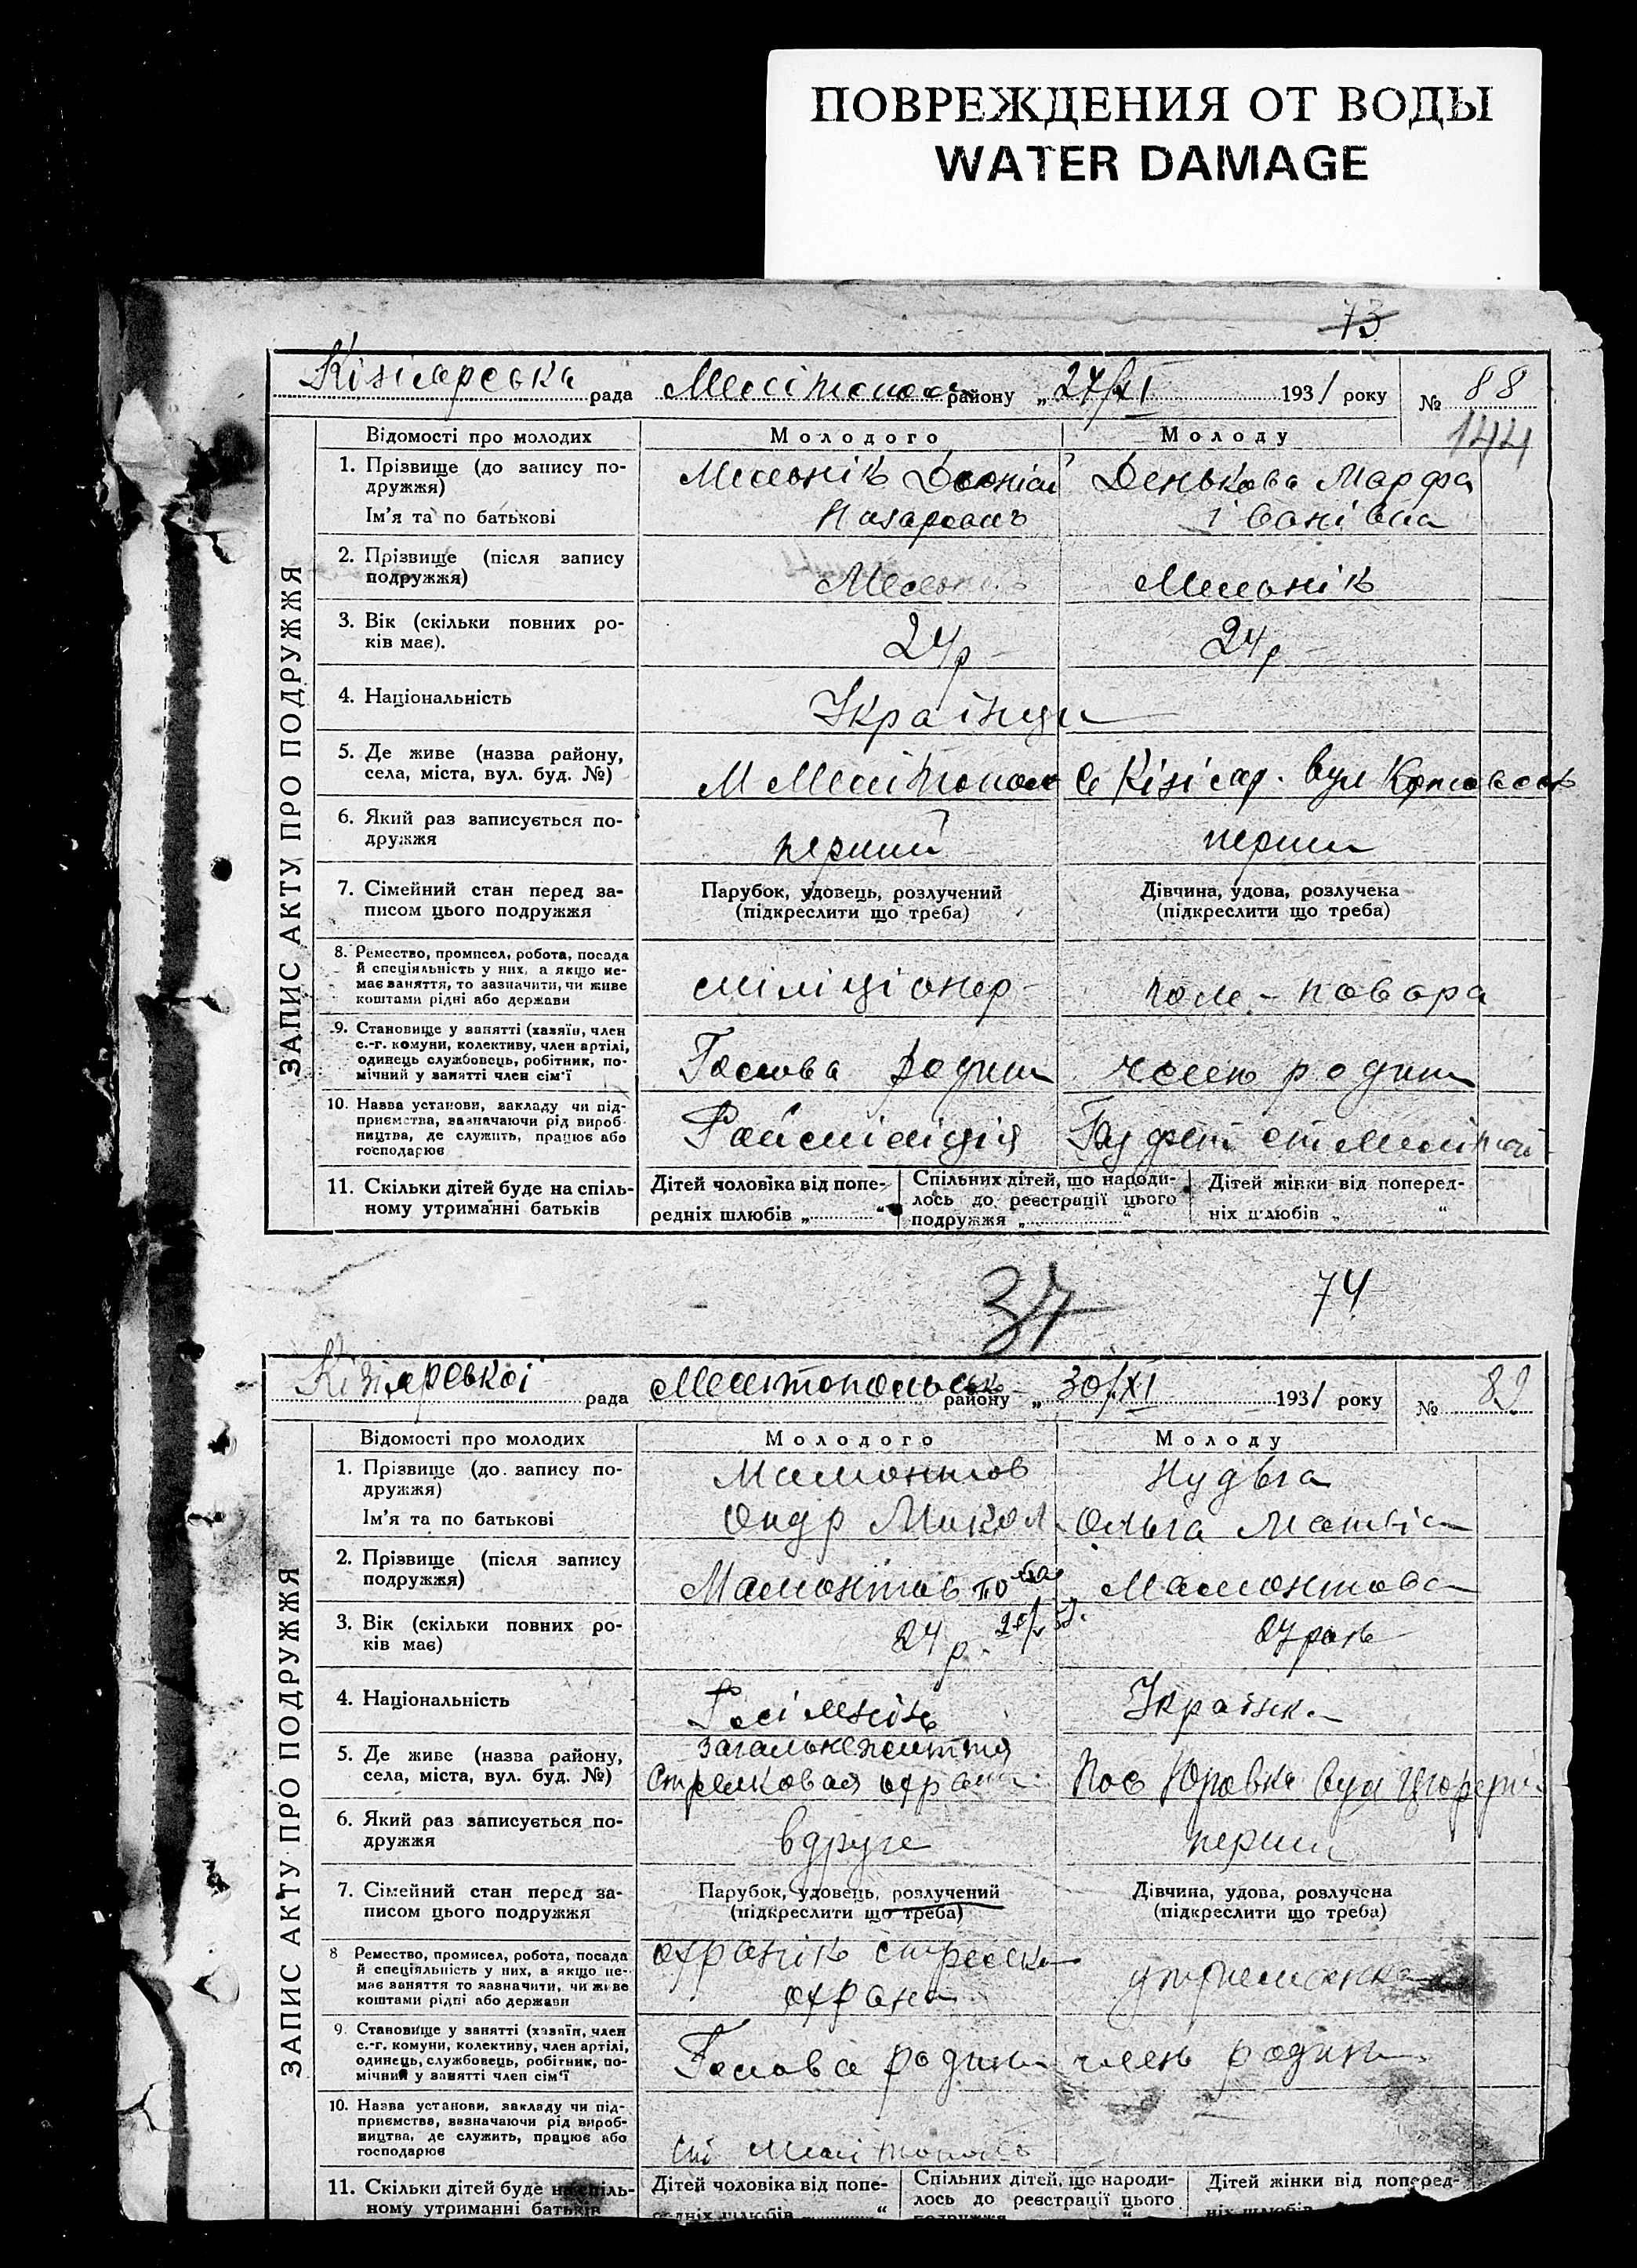 ПОВРЕЖДЕНИЯ ОТ ВОДЫ
WATER DAMAGE
73
Кізіярська рада Мелітопол району „27/XI 1931 року № 88
144
ЗАПИС АКТУ ПРО ПОДРУЖЖЯ
Відомості про молодих Молодого Молоду
1. Прізвище (до запису по-
дружжя)
Мельнік Денькова Марфа
Ім'я та по батькові
Назарович Іванівна
2. Прізвище (після запису
подружжя)
Мельнік Мельнік
3. Вік (скільки повних ро-
ків має).
24р 24р
4. Національність
Українци
5. Де живе (назва району,
села, міста, вул. буд. №)
М Мелітополь С Кізіяр. вул
6. Який раз записується по-
дружжя
перший перши
7. Сімейний стан перед за-
писом цього подружжя
Парубок, удовець, розлучений
(підкреслити що треба)
Дівчина, удова, розлучена
(підкреслити що треба)
8. Ремество, промисел, робота, посада
й спеціяльність у них, а якщо не-
має заняття, то зазначити, чи живе
коштами рідні або держави
міліціонер повора
9. Становище у занятті (хазяїн, член
с.-г. комуни, колективу, член артілі,
одинець службовець, робітник, по-
мічний у занятті член сім'ї
Голова родини член родини
10. Назва установи, закладу чи під-
приємства, зазначаючи рід вироб-
ництва, де служить, працює або
господарює
Райміліція Буфет ст
11. Скільки дітей буде на спіль-
ному утриманні батьків
Дітей чоловіка від попе-
редніх шлюбів „ “
Спільних дітей, що народи-
лось до реєстрації цього
подружжя „ “
Дітей жінки від поперед-
ніх шлюбів „ “
37
74
Кізіярської рада Мелітопольськ району „ 30/XI 1931 року № 89
ЗАПИС АКТУ ПРО ПОДРУЖЖЯ
Відомості про молодих Молодого Молоду
1. Прізвище (до запису по-
дружжя)
Мамонтов Нудьга
Ім'я та по батькові
Ондр Микол. Ольга Матвії
2. Прізвище (після запису
подружжя)
Мамонтов Мамонтова
3. Вік (скільки повних ро-
ків має)
24 р. 27 рок
4. Національність
Росіянін Українка
5. Де живе (назва району,
села, міста, вул. буд. №)
загальнежиття
Стрелковая охрана Пос Юровка вул
6. Який раз записується по-
дружжя
вдруге перши
7. Сімейний стан перед за-
писом цього подружжя
Парубок, удовець, розлучений
(підкреслити що треба)
Дівчина, удова, розлучена
(підкреслити що треба)
8 Ремество, промисел, робота, посада
й спеціяльність у них, а якщо не-
має заняття то зазначити, чи живе
коштами рідні або держави
охранік стрелк
охрани утриманка
9. Становище у занятті (хазяїн, член
с.-г. комуни, колективу, член артілі,
одинець, службовець, робітник, по-
мічний у занятті член сім'ї
Голова родини член родини
10. Назва установи, закладу чи під-
приємства, зазначаючи рід вироб-
ництва, де служить, працює або
господарює
ст Мелітополь
11. Скільки дітей буде на спіль-
ному утриманні батьків
Дітей чоловіка від попе-
редніх шлюбів “
Спільних дітей, що народи-
лось до реєстрації цього
подружжя “
Дітей жінки від поперед-
ніх шлюбів